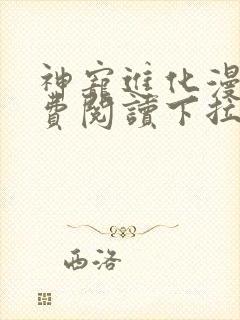 神寵進化漫
費閱讀下拉
西洛